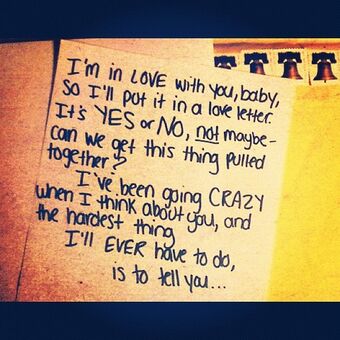 I'm in LOVE with you, baby,
So I'll put it in a love letter.
It's YES or NO, not maybe-
can we get this thing pulled
together?
I've been going CRAZY
when I think about you, and
the hardest thing
I'll EVER have to do,
is to tell you...